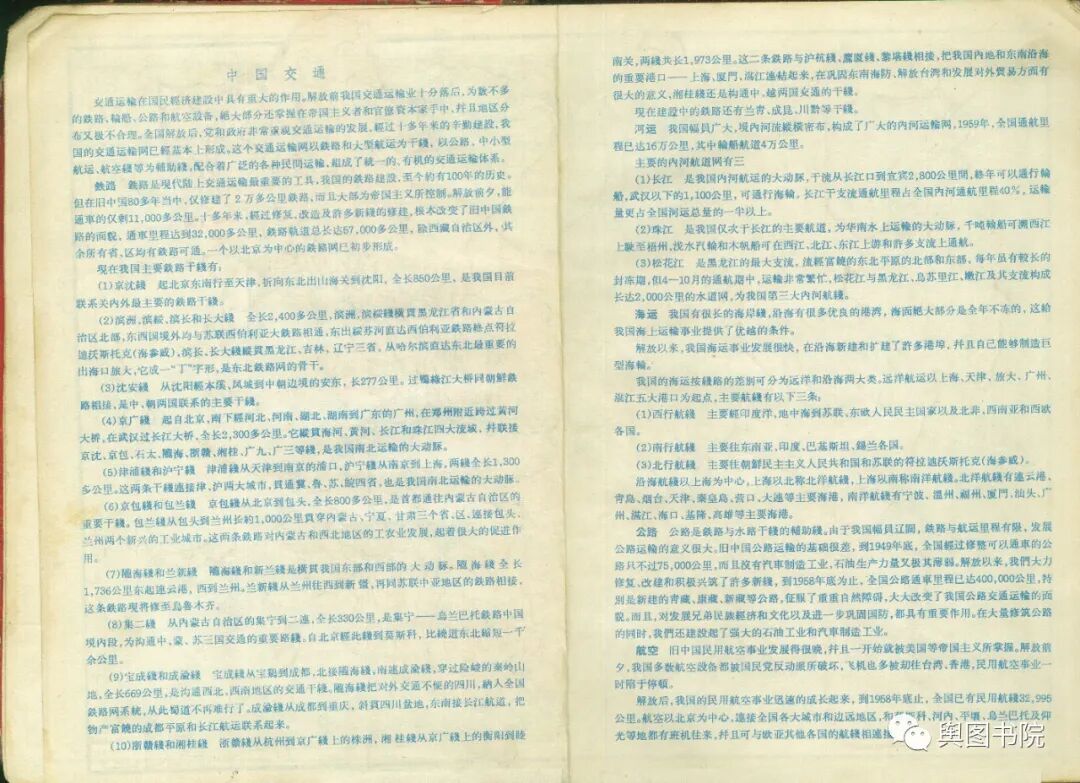 中国交通
交通运输在国民經济建設中具有重大的作用。解放前我国交通运输业十分落后,为数不多
的鉄路、輪船、公路和航空設备,絕大部分还掌握在帝国主义者和官僚資本家手中,幷且地区分
布又极不合理。全国解放后,党和政府非常重視交通运输的发展,經过十多年来的辛勤建設,我
国的交通运输网已經基本上形成。这个交通运输网以鉄路和大型航运为干綫,以公路、中小型
航运、航空綫等为輔助綫,配合着广泛的各种民間运输,組成了統一的、有机的交通运输体系。
鉄路 鉄路是现代陆上交通运输最重要的工具,我国的鉄路建設,至今約有100年的历史。
但在旧中国80多年当中,仅修建了2万多公里鉄路,而且大部为帝国主义所控制。解放前夕,能
通車的仅剩11,000多公里。十多年来,經过修复、改造及許多新綫的修建,根本改变了旧中国鉄
路的面貌,通車里程达到32,000多公里,鉄路軌道总长达67,000多公里,除西藏自治区外,其
余所有省、区均有鉄路可通。一个以北京为中心的鉄路网已初步形成。
现在我国主要鉄路干綫有:
(1)京沈綫 起北京东南行至天津,折向东北出山海关到沈阳,全长850公里,是我国目前
联系关内外最主要的鉄路干綫。
(2)滨洲、滨綏、滨长和长大綫 全长2,400多公里,滨洲、滨綏綫橫貫黑龙江省和內蒙古自
治区北部,东西国境外均与苏联西伯利亚大鉄路相通,东出綏芬河直达西伯利亚鉄路終点符拉
迪沃斯托克(海参威),滨长、长大綫縱貫黑龙江、吉林、辽宁三省,从哈尔滨直达东北最重要的
出海口旅大,它成一“丁”字形,是东北鉄路网的骨干。
(3)沈安綫 从沈阳經本溪、凤城到中朝边境的安东,长277公里。过鴨綠江大桥同朝鮮鉄
路相接,是中、朝两国联系的主要干綫。
(4)京广綫 起自北京,南下經河北、河南、湖北、湖南到广东的广州,在郑州附近跨过黃河
大桥,在武汉过长江大桥,全长2,300多公里。它縱貫海河、黃河、长江和珠江四大流域,幷联接
京沈、京包、石太、隴海、浙贛、湘桂、广九、广三等綫,是我国南北运输的大动脉。
(5)津浦綫和沪宁綫 津浦綫从天津到南京的浦口,沪宁綫从南京到上海,两綫全长1,300
多公里。这两条干綫連接津、沪两大城市,貫通冀、魯、苏、皖四省,也是我国南北运输的大动脉。
(6)京包綫和包兰綫 京包綫从北京到包头,全长800多公里,是首都通往內蒙古自治区的
重要干綫。包兰綫从包头到兰州长約1,000公里貫穿內蒙古、宁夏、甘肃三个省、区,連接包头、
兰州两个新兴的工业城市。这两条鉄路对內蒙古和西北地区的工农业发展,起着很大的促进作
用。
(7)隴海綫和兰新綫 隴海綫和新兰綫是橫貫我国东部和西部的大动脉。隴海綫全长
1,736公里东起連云港,西到兰州。兰新綫从兰州往西到新疆,将同苏联中亚地区的鉄路相接。
这条鉄路现将修至乌魯木齐。
(8)集二綫 从內蒙古自治区的集宁到二連,全长330公里,是集宁——乌兰巴托鉄路中国
境內段,为沟通中、蒙、苏三国交通的重要路綫,自北京經此綫到莫斯科,比繞道东北縮短一千
余公里。
(9)宝成綫和成渝綫 宝成綫从宝鷄到成都,北接隴海綫,南連成渝綫,穿过险峻的秦岭山
地,全长669公里,是沟通西北、西南地区的交通干綫。隴海綫把对外交通不便的四川,納入全国
鉄路网系統,从此蜀道不再难行了。成渝綫从成都到重庆,斜貫四川盆地,东南接长江航道,把
物产富饒的成都平原和长江航运联系起来。
(10)浙贛綫和湘桂綫 浙贛綫从杭州到京广綫上的株洲,湘桂綫从京广綫上的衡阳到睦
南关,两綫共长1,973公里。这二条鉄路与沪杭綫、鷹厦綫、黎堪綫相接,把我国內地和东南沿海
的重要港口——上海、厦門、湛江連結起来,在巩固东南海防、解放台湾和发展对外貿易方面有
很大的意义,湘桂綫还是构通中、越两国交通的干綫。
现在建設中的鉄路还有兰青、成昆、川黔等干綫。
河运 我国幅員广大,境內河流縱橫密布,构成了广大的內河运输网,1959年,全国通航里
程已达16万公里,其中輪船航道4万公里。
主要的內河航道网有三
(1)长江 是我国內河航运的大动脉,干流从长江口到宜宾2,800公里間,終年可以通行輪
船,武汉以下的1,100公里,可通行海輪,长江干支流通航里程占全国內河通航里程40%,运输
量更占全国河运总量的一半以上。
(2)珠江 是我国仅次于长江的主要航道,为华南水上运输的大动脉,千吨輪船可溯西江
上驶至梧州,浅水汽輪和木帆船可在西江、北江、东江上游和許多支流上通航。
(3)松花江 是黑龙江的最大支流,流經富饒的东北平原的北部和东部,每年虽有較长的
封冻期,但4—10月的通航期中,运输非常繁忙,松花江与黑龙江、乌苏里江、嫩江及其支流构成
长达2,000公里的水道网,为我国第三大內河航綫。
海运 我国有很长的海岸綫,沿海有很多优良的港湾,海面絕大部分是全年不冻的,这給
我国海上运输事业提供了优越的条件。
解放以来,我国海运事业发展很快,在沿海新建和扩建了許多港埠,幷且自己能够制造巨
型海輪。
我国的海运按綫路的差別可分为远洋和沿海两大类。远洋航运以上海、天津、旅大、广州、
湛江五大港口为起点,主要航綫有以下三条:
(1)西行航綫 主要經印度洋、地中海到苏联、东欧人民民主国家以及北非、西南亚和西欧
各国。
(2)南行航綫 主要往东南亚、印度、巴基斯坦、錫兰各国。
(3)北行航綫 主要往朝鮮民主主义人民共和国和苏联的符拉迪沃斯托克(海参威)。
沿海航綫以上海为中心,上海以北称北洋航綫,上海以南称南洋航綫。北洋航綫有連云港、
青島、烟台、天津、秦皇島、营口、大連等主要海港,南洋航綫有宁波、溫州、福州、厦門、汕头、广
州、湛江、海口、基隆、高雄等主要海港。
公路 公路是鉄路与水路干綫的輔助綫。由于我国幅員辽闊,鉄路与航运里程有限,发展
公路运输的意义很大。旧中国公路运输的基础很差,到1949年底,全国經过修整可以通車的公
路只不过75,000公里,而且沒有汽車制造工业,石油生产力量又极其薄弱。解放以来,我們大力
修复、改建和积极兴筑了許多新綫,到1958年底为止,全国公路通車里程已达400,000公里,特
別是新建的青藏、康藏、新藏等公路,征服了重重自然障碍,大大改变了我国公路交通运输的面
貌。而且,对发展兄弟民族經济和文化以及进一步巩固国防,都具有重要作用。在大量修筑公路
的同时,我們还建設起了强大的石油工业和汽車制造工业。
航空 旧中国民用航空事业发展得很晚,幷且一开始就被美国等帝国主义所掌握。解放前
夕,我国多数航空設备都被国民党反动派所破坏,飞机也多被刧往台湾、香港,民用航空事业一
时陷于停頓。
解放后,我国的民用航空事业迅速的成长起来,到1958年底止,全国已有民用航綫32,995
公里。航空以北京为中心,連接全国各大城市和边远地区,和 科、河內、平壤、乌兰巴托及仰
光等地都有班机往来,幷且可与欧亚其他各国的航綫相連接
舆图书院